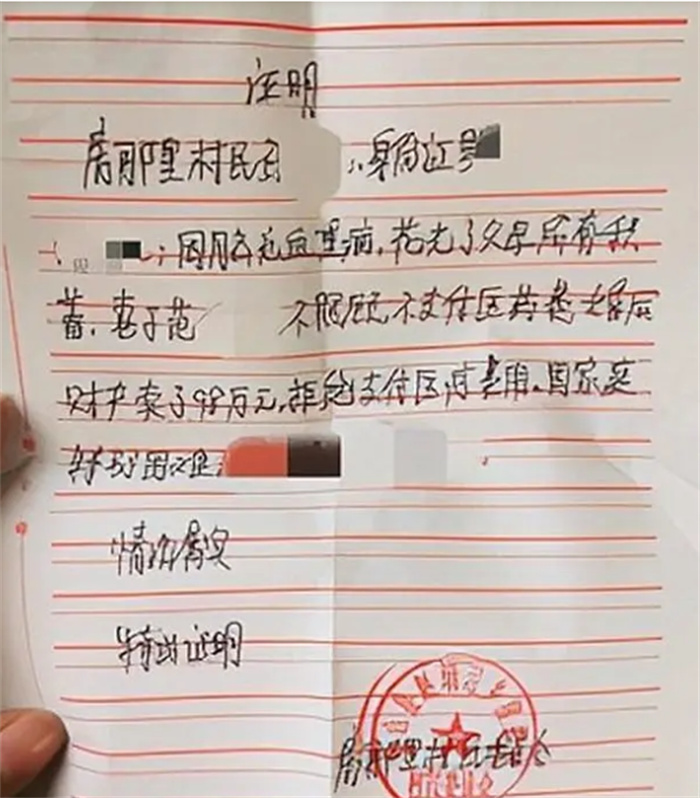 证明
房那里村民白 身份证号
因脑毛血里病,花光了父母所有积
蓄,妻子范 不照顾不支付医药费婚后
财产卖了98万元,拒绝支付医疗费用,因家庭
特别困难
情况属实
特此证明
房那里村民委会